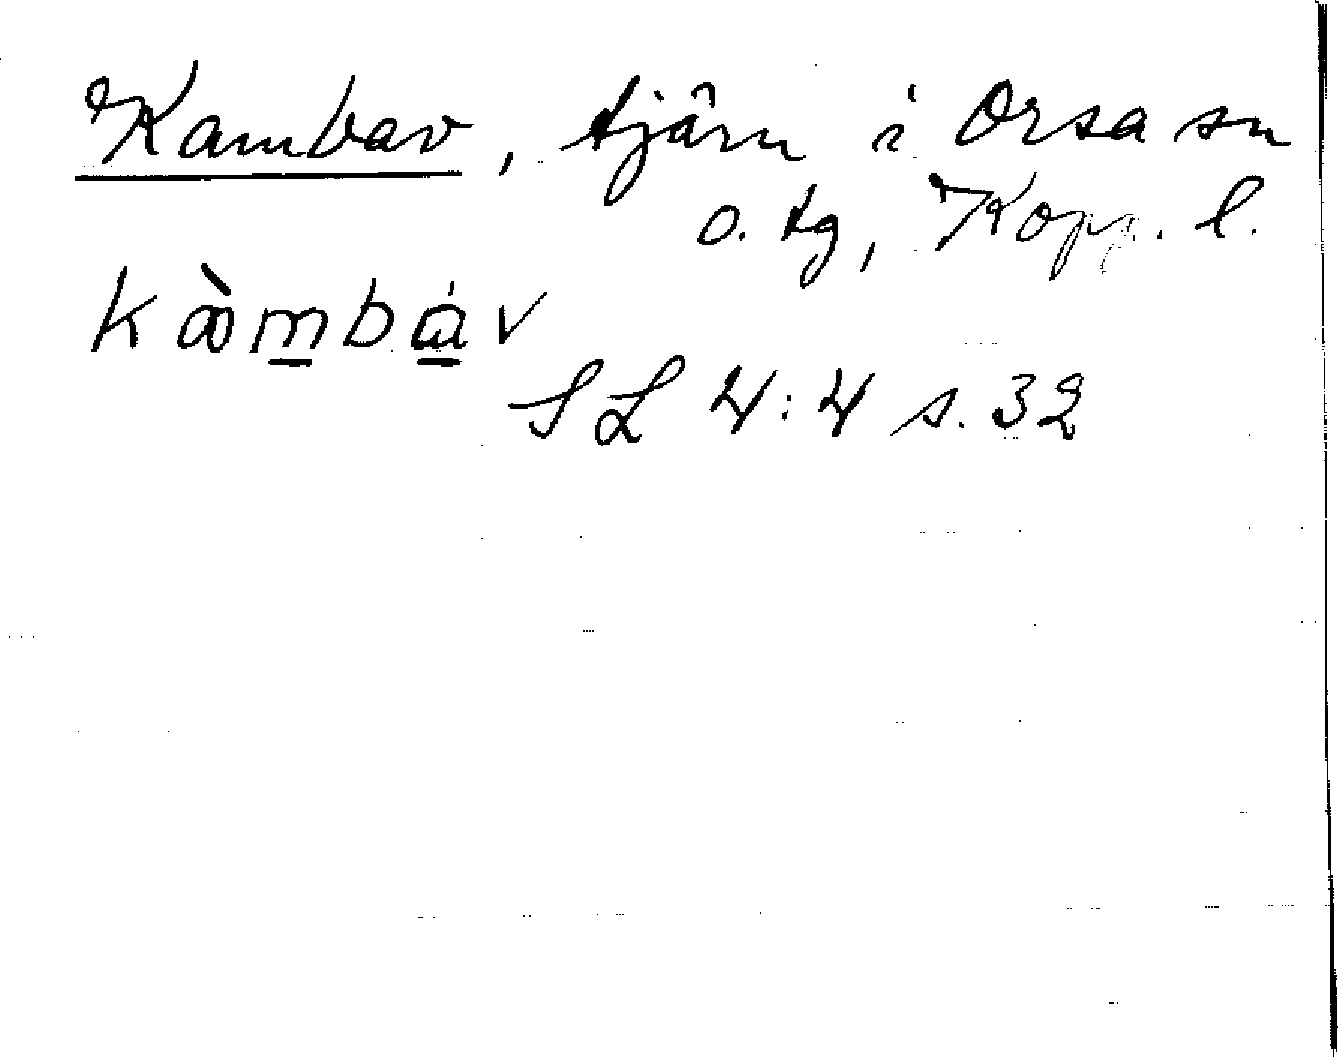 Kambav, tjärn i Orsa sn
o. tg, Kopp. l.
kàmbáv
SL 4:4 s. 32